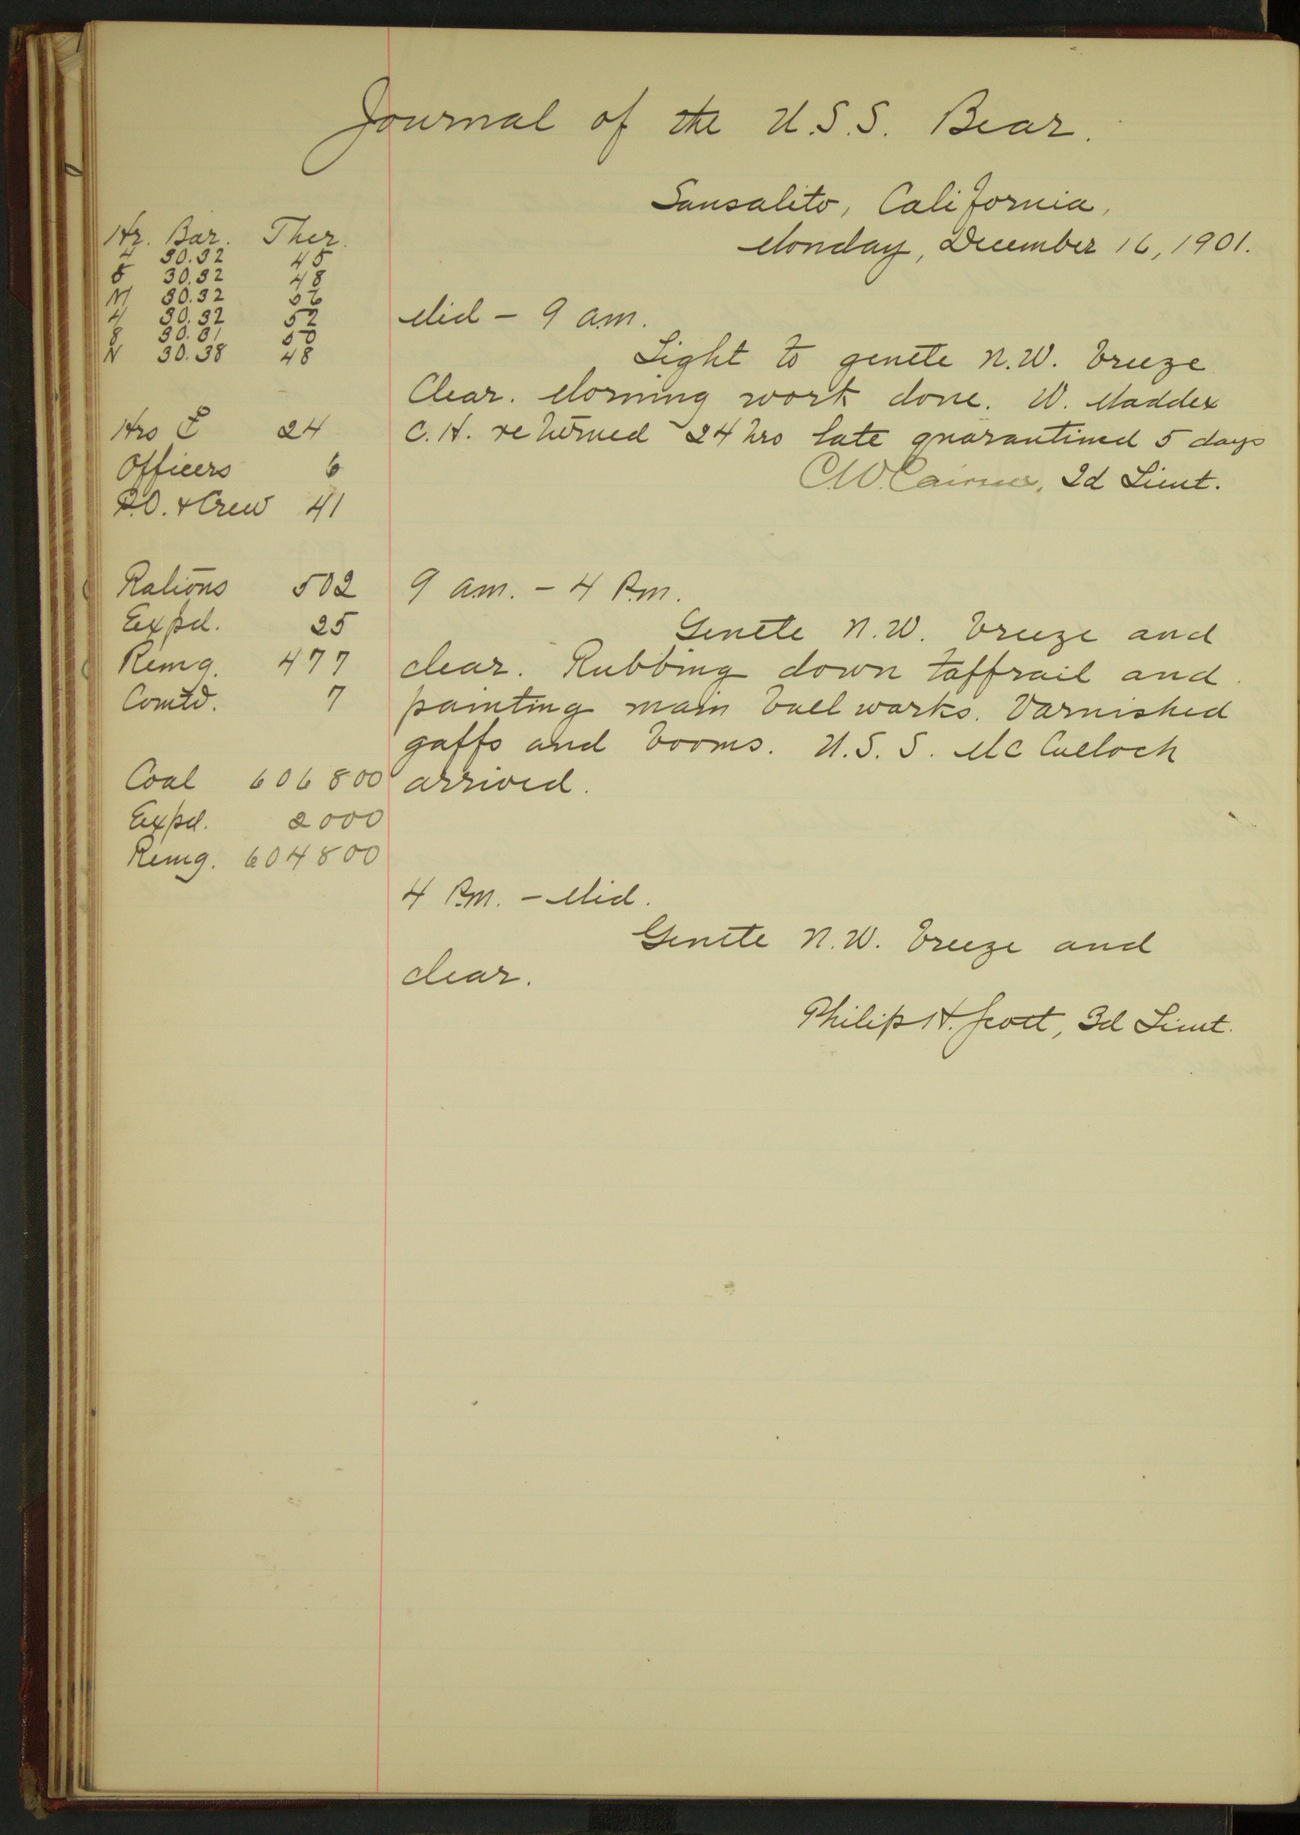 Journal of the U.S.S. Bear.
Sausalito, California,
Monday, December 16, 1901.
Hr. Bar. Ther.
4 30.32 45
8 30.32 48
M 30.32 56
4 30.32 52
8 30.31 50
N 30.38 48
Hrs E 24
Officers 6
P.O. & Crew 41
Rations 502
Expd. 25
Remg. 477
Comtd. 7
Coal 606800
Expd. 2000
Remg. 604800
Mid - 9 a.m.
Light to gentle N.W. breeze
Clear. Morning work done. W. Maddex
C.H. returned 24 hrs late quarantined 5 days
C.W. Cairnes, 2d Lieut.
9 a.m. - 4 P.m.
Gentle N.W. breeze and
clear. Rubbing down taffrail and
painting main bullwarks. Varnished
gaffs and booms. U.S.S. McCulloch
arrived.
4 P.m. - Mid.
Gentle N.W. breeze and
clear.
Philip H. Scott, 3d Lieut.